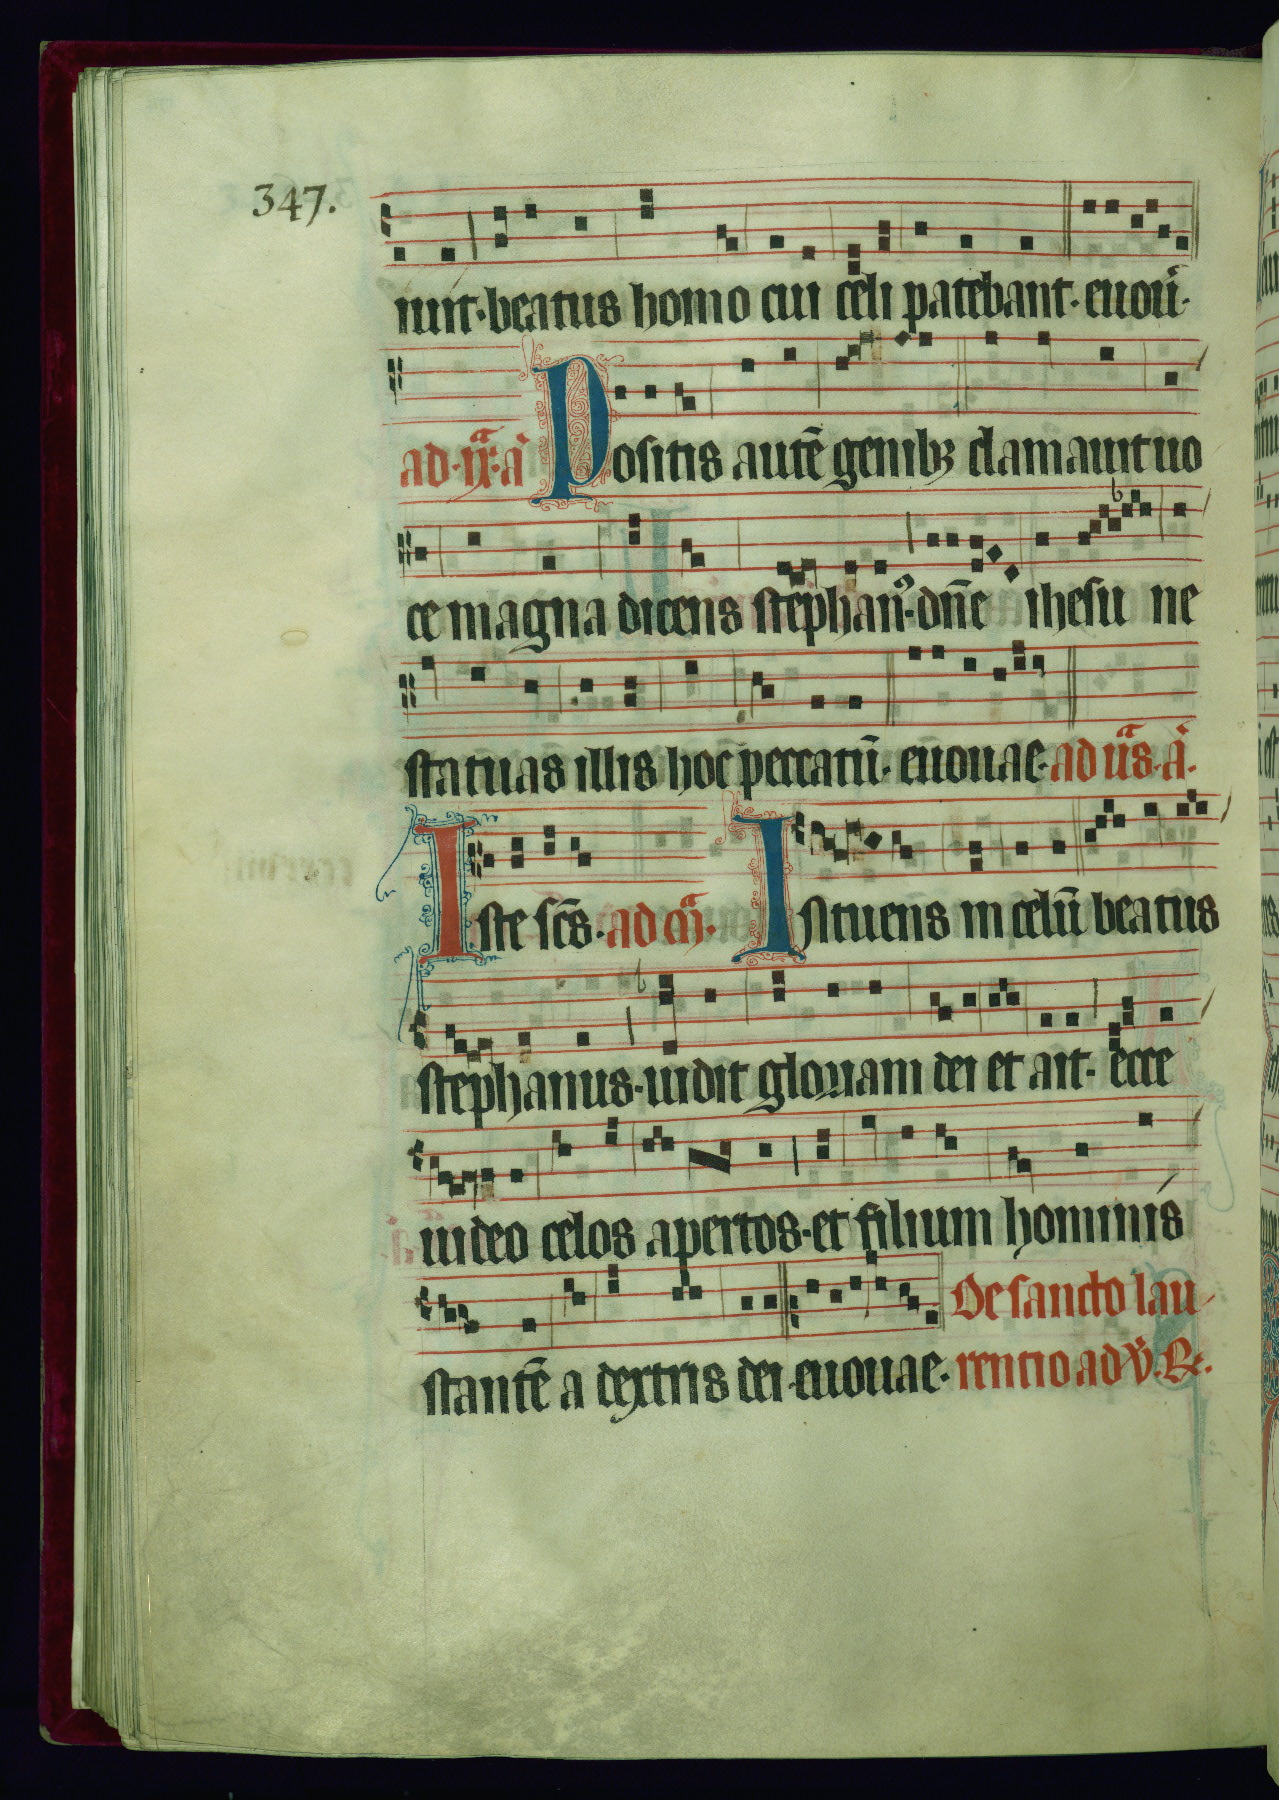 347.
nuit·beatus homo cui celi patebant·euoū·
ad·ix·a Positis autē genibꝫ clamauit uo
ce magna dicens stephan᾽·dn̄e ihesu ne
statuas illis hoc peccatū·euouae·ad ūs·a·
Iste sc̄s·ad m̄·Intuens in celū beatus
stephanus·uidit gloriam dei et ait·ecce
uideo celos apertos·et filium hominis
De sancto lau
stantē a dextris dei·euouae·rentio ad v̄·℟·